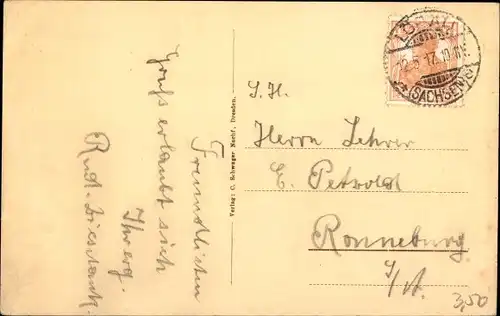 LÖBAU
16.5.17.10-11V.
(SACHSEN)
S. H.
Herrn Lehrer
E. Petzold
Ronneburg
S/A.
3,50
Verlag: C. Schwager Nachf., Dresden.
Freundlichsten
Gruß erlaubt sich
Ihr erg.
Rud.